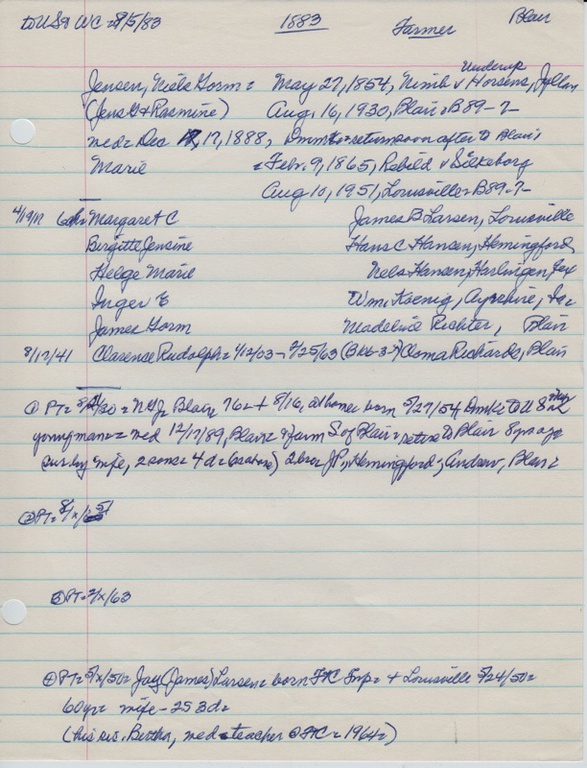 to US & WC = 8/5/83 1883 Farmer Blair
Underup
Jensen, Niels Gorm = May 27, 1854, Nimb v Horsens, Jylland
(Jens G & Rasmine) Aug. 16, 1930, Blair = B89-7-
med = Dec 17, 1888, Dmmk = return soon after to Blair
Marie = Febr. 9, 1865, Rebild v Silkeborg
Aug 10, 1951, Louisville = B89-7-
4/19/17 6 ch = Margaret C James B Larsen, Louisville
Birgitte Jensine Hans C Hansen, Hemingford
Helge Marie Nels Hansen, Harlingen, Tex
Inger E Wm. Koenig, Ayrshire, Ia
James Gorm Madeline Richter, Blair
8/12/41 Clarence Rudolph = 4/12/03 - 2/25/63 (B66-3-7) Cloma Richards, Blair
① PT = 8/21/30 = NGJ = Blair, 76 = + 8/16, at home born 5/27/54 Dmk = to US
young man = med 12/17/89, Blair = farm S of Blair = retire to Blair 8 yrs ago
sur by wife, 2 sons = 4 d = (6 as above) 2 bro = JP, Hemingford; Andrew, Blair =
② PT = 8/x/51
③ PT = 2/x/63
④ PT = 5/x/50 = Jay (James) Larsen = born FtC Twp = + Louisville 5/24/50 =
60 yr = wife - 2S 3d =
(his sis. Bertha, med teacher @ FtC = 1964 =)